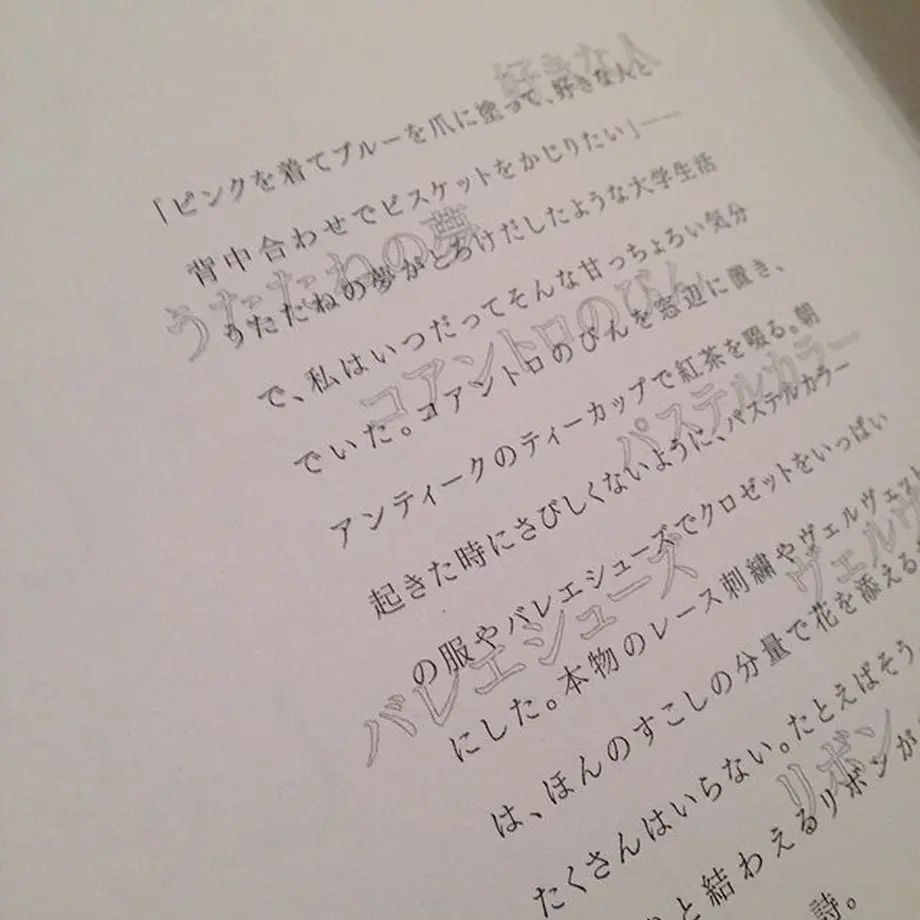 好きな人
「ピンクを着てブルーを爪に塗って、好きな人と、
背中合わせでビスケットをかじりたい」──
うたたねの夢
うたたねの夢がとろけだしたような大学生活
で、私はいつだってそんな甘っちょろい気分
コアントロのびん
でいた。コアントロのびんを窓辺に置き、
アンティークのティーカップで紅茶を啜る。朝
パステルカラー
起きた時にさびしくないように、パステルカラー
の服やバレエシューズでクロゼットをいっぱい
バレエシューズ
にした。本物のレース刺繍やヴェルヴェット
ヴェルヴ
は、ほんのすこしの分量で花を添える
たくさんはいらない。たとえばそう、
リボン
と結わえるリボンが
詩。